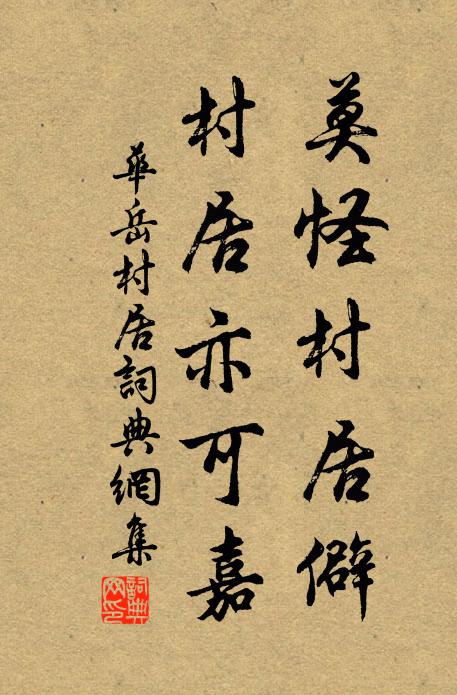 莫怪村居僻
村居亦可嘉
華岳村居詞典網集
詞典
网印